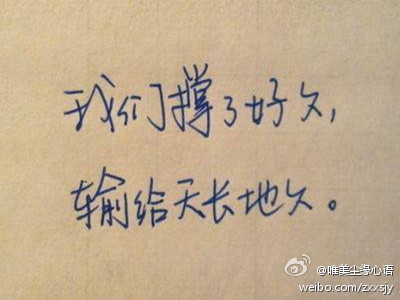 我们撑了好久，
输给天长地久。
@唯美尘缘心语
weibo.com/zxxsjy